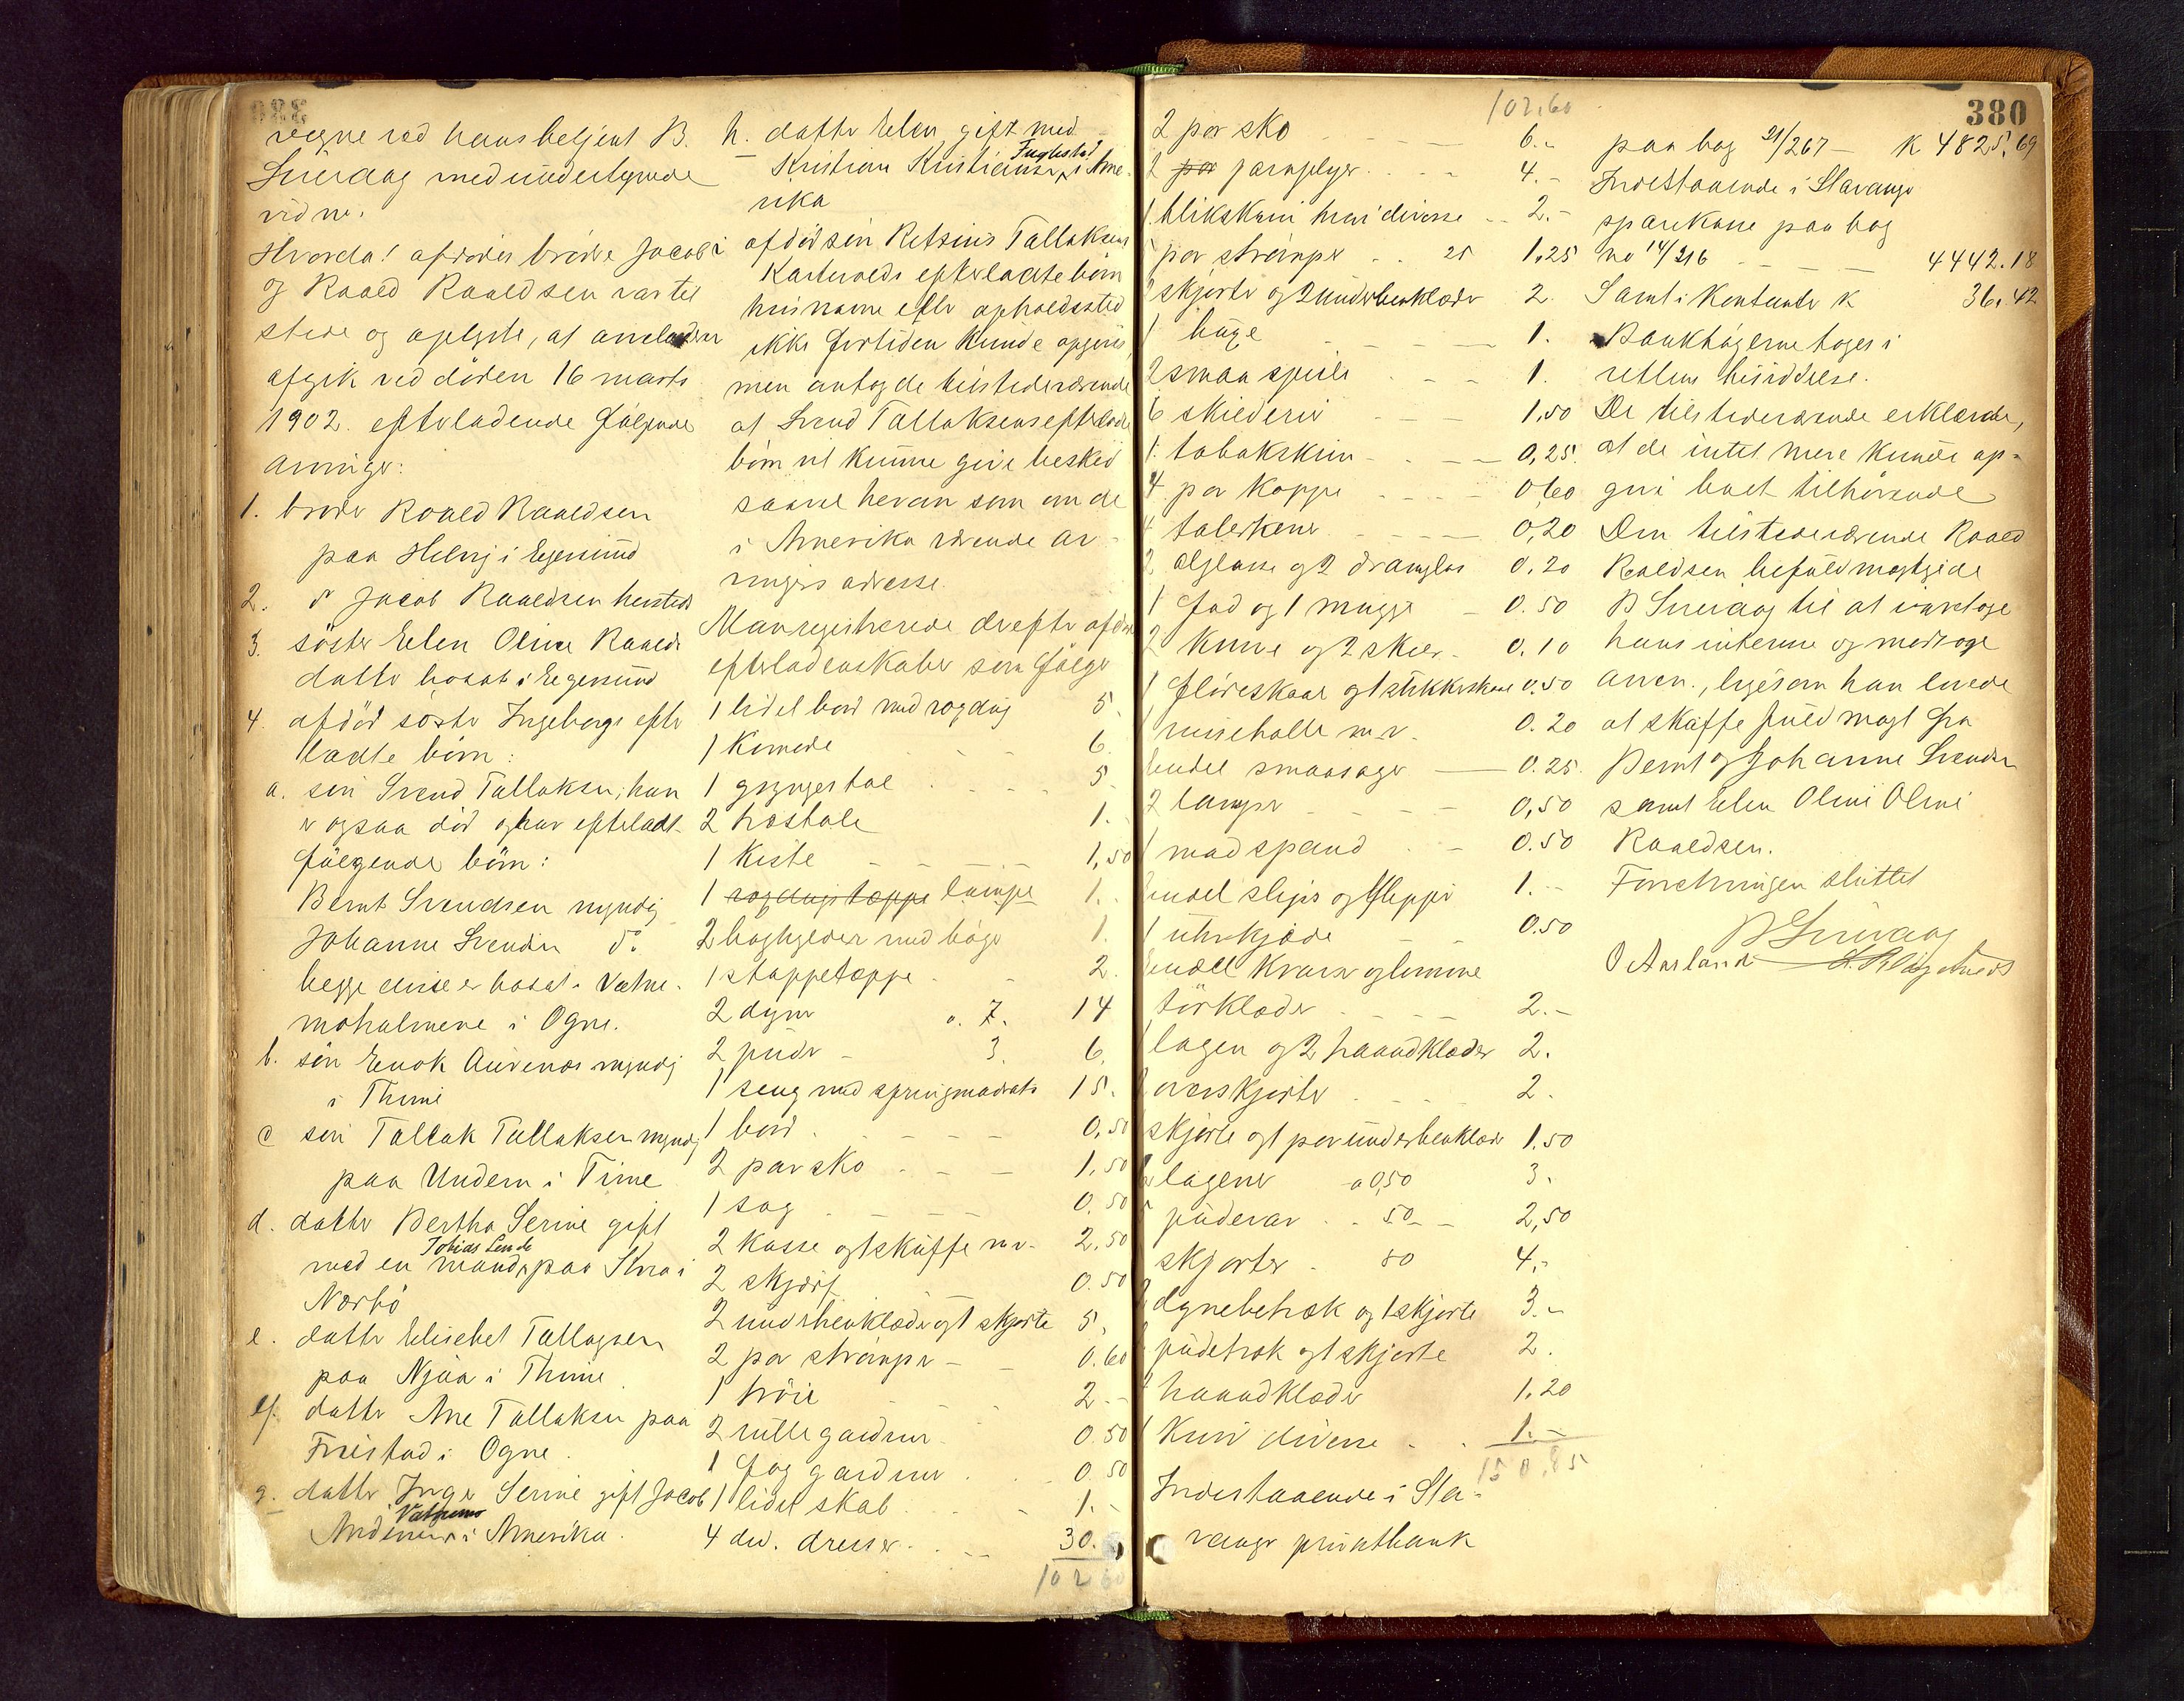 vegne ved hans betjent B.
Sirevaag med undertegnede
vidne.
Hvorda! afdødes brødre Jacob
og Raald Raaldsen var til
stede og oplyste, at anmelderen
afgik ved døden 16 marts
1902. efterladende følgende
arvinger:
1. broder Roald Raaldsen
paa Helvig i Egersund
2. do Jacob Raaldsen hersteds
3. søster Elen Oline Raalds
datter bosat i Egersund
4. afdød søster Ingeborgs efter
ladte børn:
a. søn Svend Tallaksen, han
er ogsaa død og har efterladt
følgende børn:
Bernt Svendsen myndig
Johanne Svendsen do
begge disse er bosat i Vatne-
mohalmene i Ogne.
b. søn Enok Aurenes myndig
i Thime
c søn Tallak Tallaksen myndig
paa Undem i Time
d. datter Bertha Serine gift
Tobias Lende
med en mand paa Kvia i
Nærbø
e. datter Elisebet Tallagsen
paa Njaa i Thime
f. datter Ane Tallaksen paa
Fuistad i Ogne.
g. datter Inger Serine gift Jacob
Vatnemo
Andersen i Amerika.
h. datter Elen gift med
Fuglestad
Kristian Kristiansen i Ame-
rika
i afdød søn Retsius Tallaksen
Karlsvolds efterladte børn
hvis navne eller opholdssted
ikke for tiden kunde opgives,
men antog de tilstedeværende
at Svend Tallaksens efterladte
børn vil kunne give besked
saavel herom som om de
i Amerika værende ar-
vingers adresse.
Man registrerede derefter afdødes
efterladenskaber som følger
1 lidet bord med voxdug 5.
1 Komode 6.
1 gyngestol 5.
2 træstole 1.
1 Kiste 1,50
1 voxdugs tæppe lampe 1.
2 boghylder med bøger 1.
1 stoppetæppe 2.
2 dyner a. 7. 14
2 puder 3. 6.
1 seng med springmadrats 15.
1 bord 0,50
2 par sko 1,50
1 sag 0,50
2 kasse og 1 skuffe m.v. 2.50
2 skjærf 0.50
2 underbenklæder og 1 skjorte 5.
2 par strømper 0.60
1 trøie 2.-
2 rullegardiner 0.50
1 fag gardiner 0.50
1 lidet skab 1.-
4 div. dresser 30.
102 60
102,60
2 par sko 6.-
2 par galoscher 4.-
1 blikskrin hvori diverse 2.-
5 par strømper 25 1,25
2 skjorter og 2 underbenklæder 2.
1 buxe 1.
2 smaa speile 1.
6 skilderier 1,50
1 tobakskrin 0,25.
4 par kopper 0.60
4 talerkener 0,20
2 ølglasse og 2 dramglas 0.20
1 fad og 1 mugge 0.50
2 Knive og 2 skeer 0.10
1 fløreskaal og 1 stikkerskaal 0.50
1 reiseholle m.v. 0.20
Endel smaasager 0.25.
2 lamper 0,50
1 madspand 0.50
Endel slips og flipper 1.-
1 uhrkjæde 0.50
Endel Kraver og lomme
tørklæder 2.-
1 lagen og 2 haandklæder 2.
2 overskjorter 2.
skjorte og 1 par underbenklæder 1.50
6 lagener a 0,50 3.
5 pudevar 50 2,50
skjorter 80 4.-
dynebetræk og 1 skjorte 3.-
pudetræk og 1 skjorte 2.
haandklæder 1,20
1 Kurv diverse 1.-
150,85
Indestaaende i Sta-
vanger privatbank
380
paa bog 21/267 - K 4825,69
Indestaaende i Stavanger
sparekasse paa bog
no 14/216 4442.18
Samt i Kontanter K 36.42
Bankbøgerne toges i
rettens besiddelse.
De tilstedeværende erklærede,
at de intet mere kunde op-
give boet tilhørende
Den tilstedeværende Raald
Raaldsen befuldmægtigede
B Sirevaag til at ivaretage
hans interesser og modtage
arven, ligesom han lovede
at skaffe fuldmagt fra
Bernt og Johanne Svendsen
samt Elen Oline Oline
Raaldsen.
Forretningen sluttet
B Sirevaag
O Aarland